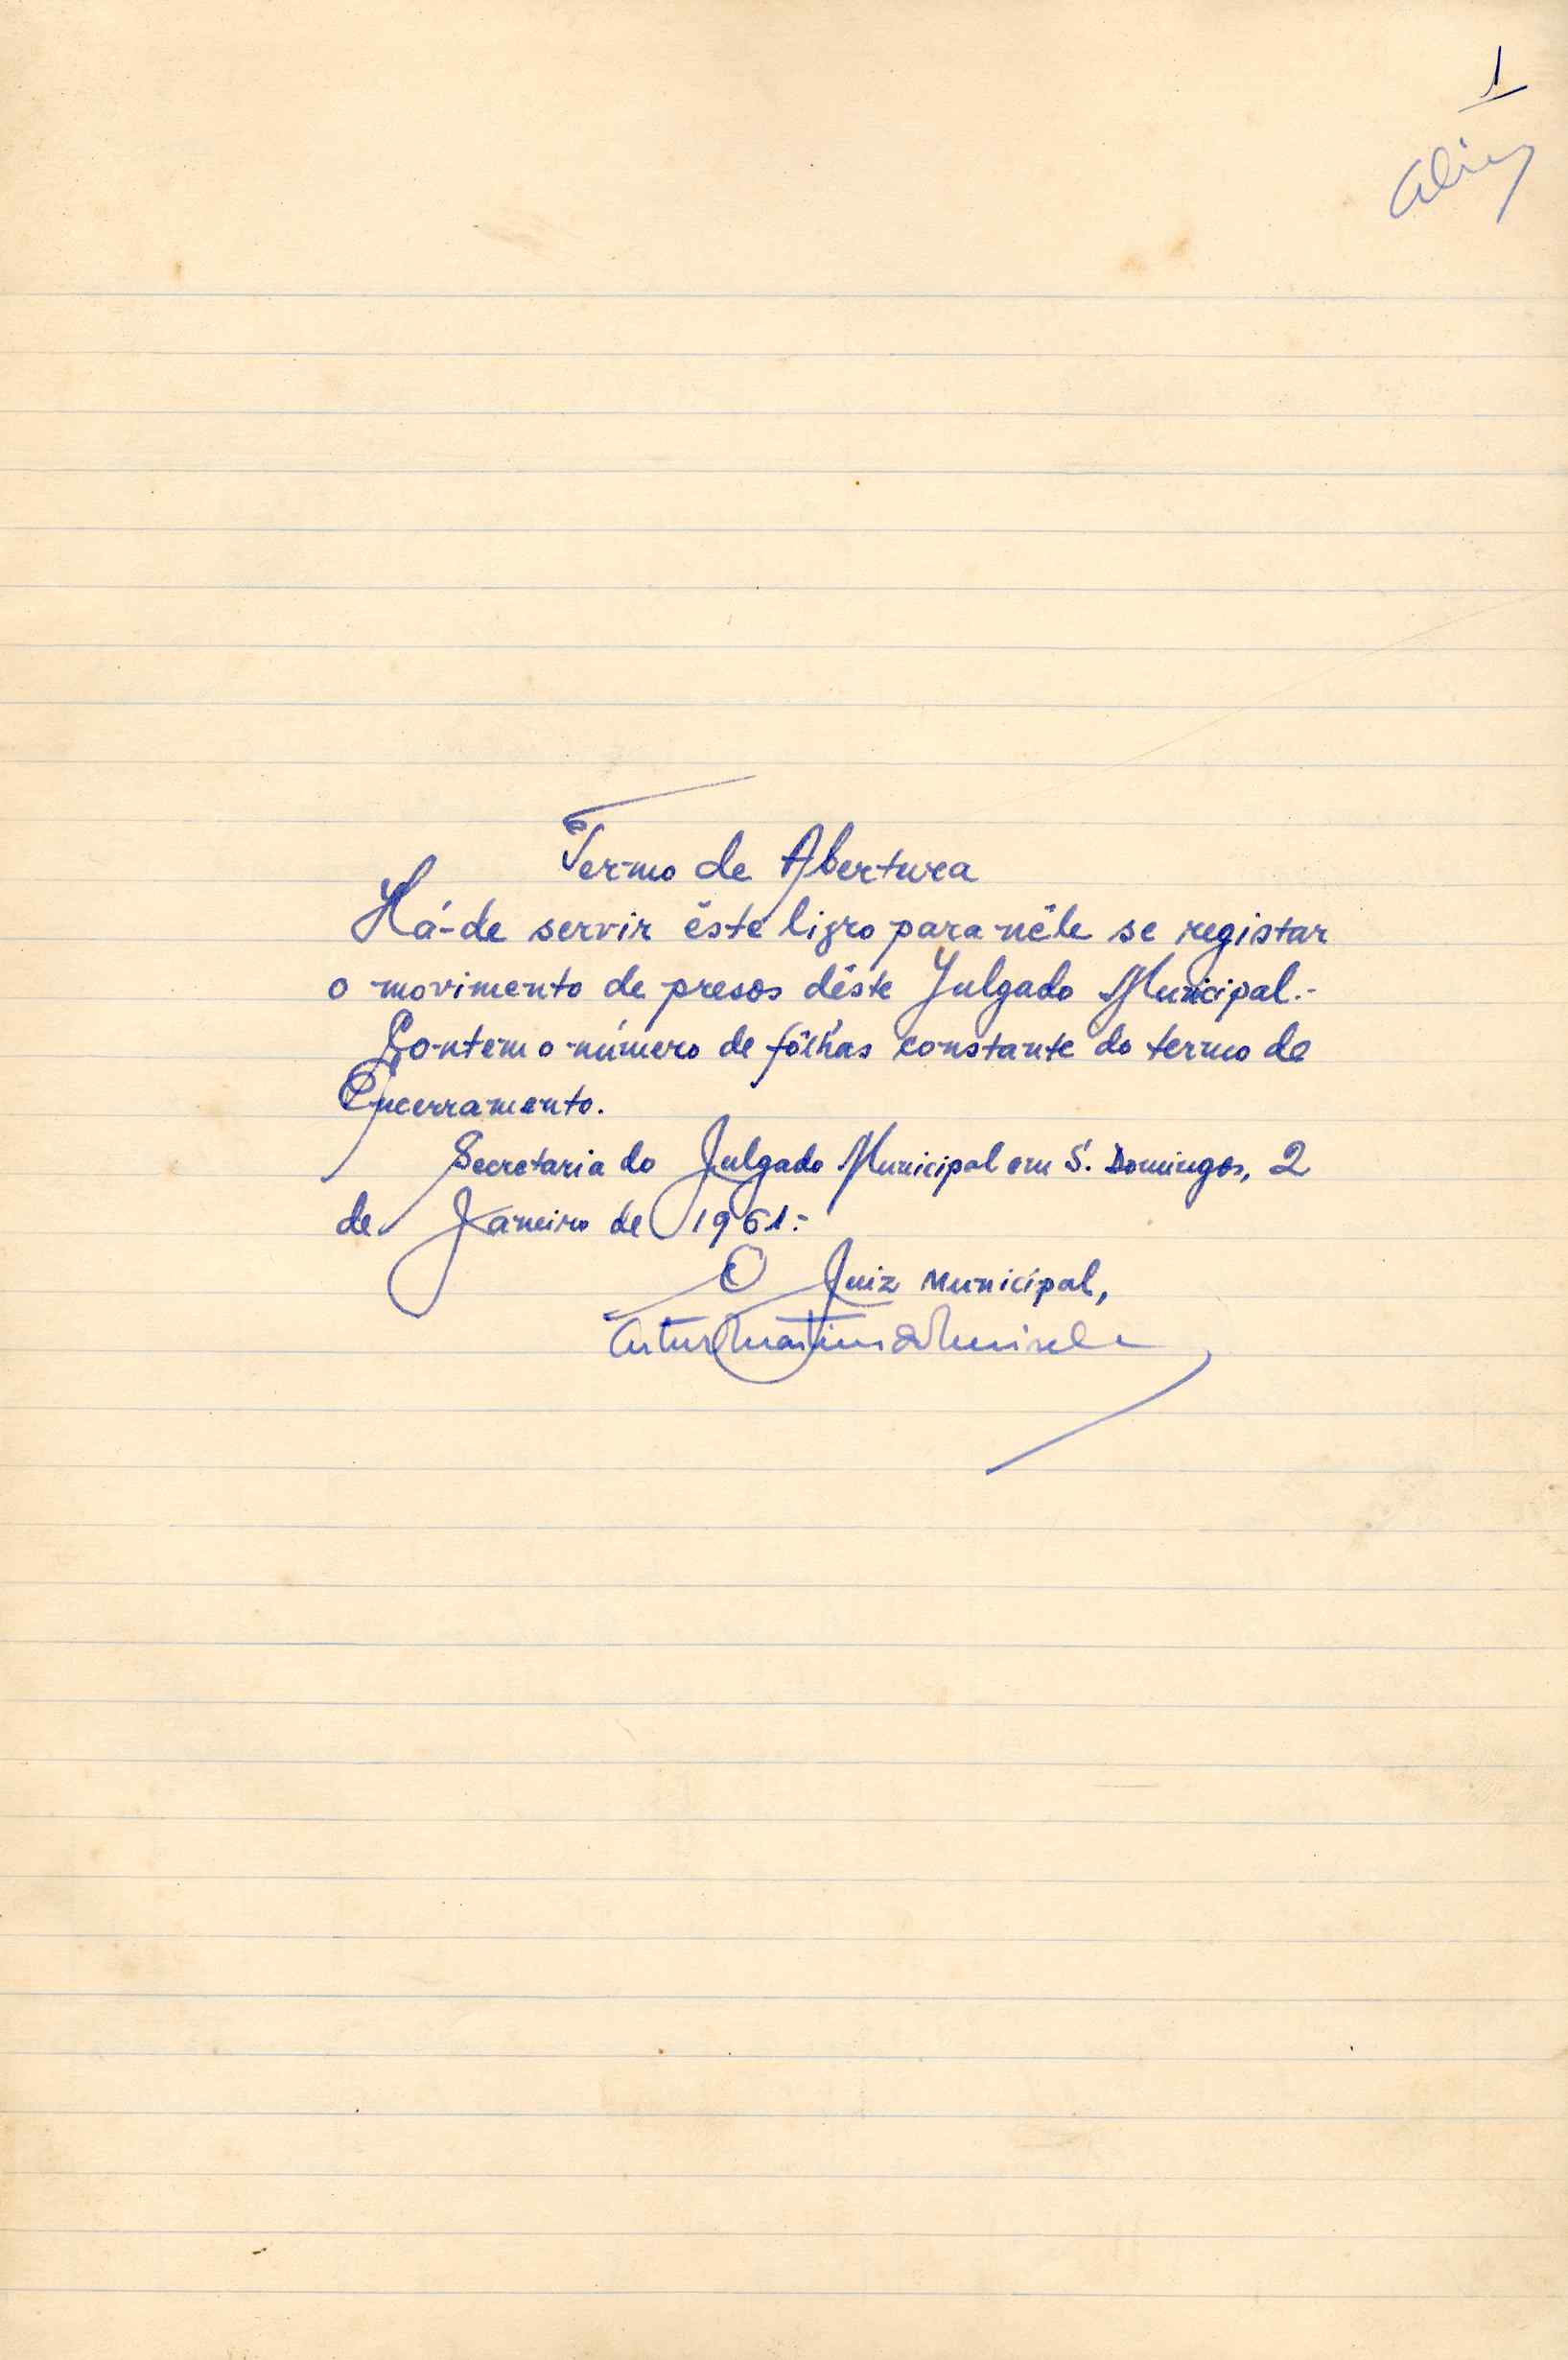 1
Termo de Abertura
Há-de servir êste livro para nêle se registar
o movimento de presos dêste Julgado Municipal.-
Contem o número de fôlhas constante do termo de
Encerramento.
Secretaria do Julgado Municipal em S. Domingos, 2
de Janeiro de 1961.-
O Juiz Municipal,
Artur Martins de